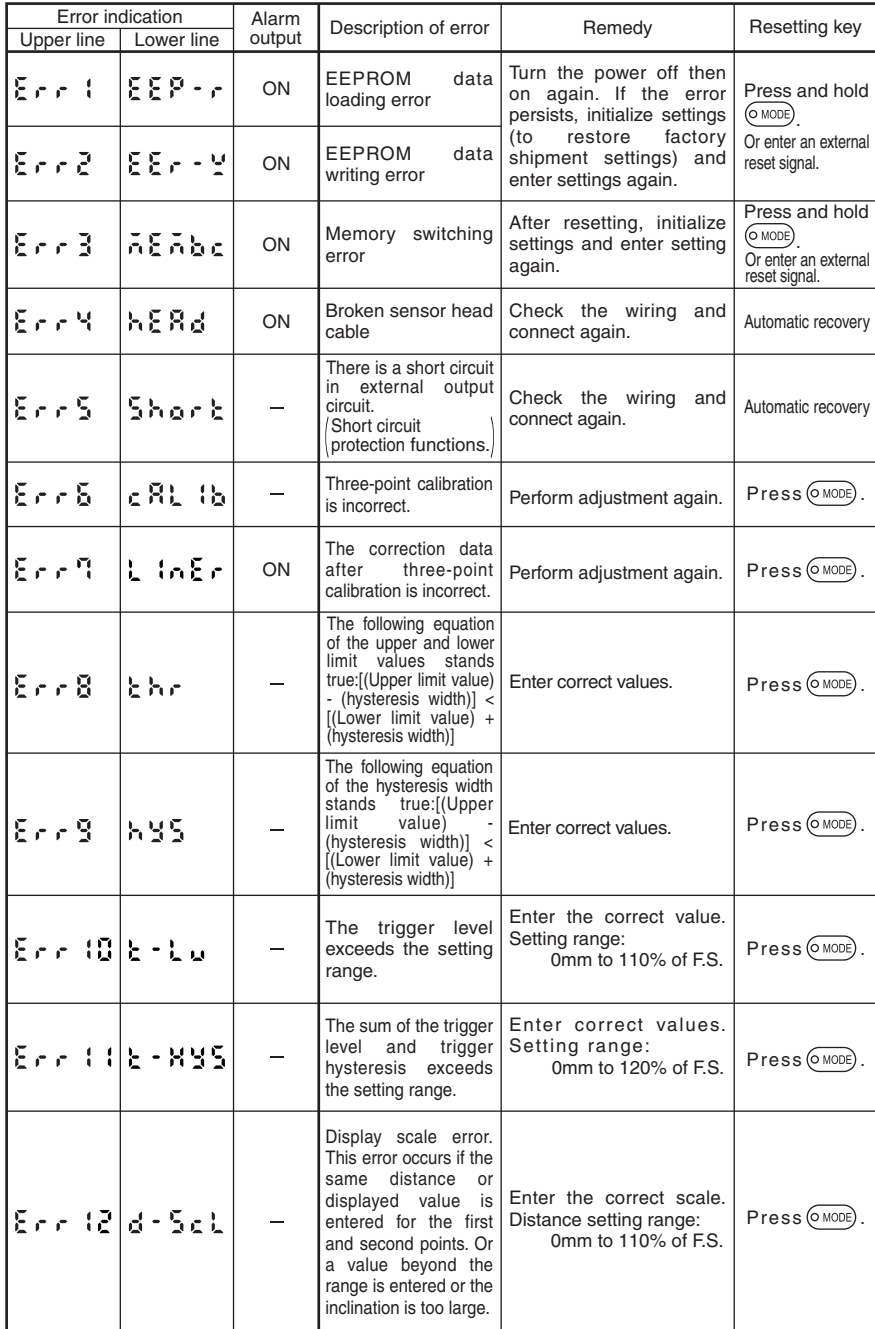 Error indication
Alarm output
Description of error
Remedy
Resetting key
Upper line
Lower line
Err 1
EEP-r
ON
EEPROM data
loading error
Turn the power off then
on again. If the error
persists, initialize settings
(to restore factory
shipment settings) and
enter settings again.
Press and hold
MODE.
Or enter an external
reset signal.
Err2
EEr-y
ON
EEPROM data
writing error
Err3
ON
Memory switching
error
After resetting, initialize
settings and enter setting
again.
Press and hold
MODE.
Or enter an external
reset signal.
Err4
hEAd
ON
Broken sensor head
cable
Check the wiring and
connect again.
Automatic recovery
Err5
Short
–
There is a short circuit
in external output
circuit.
(Short circuit
protection functions.)
Check the wiring and
connect again.
Automatic recovery
Err6
cAL ib
–
Three-point calibration
is incorrect.
Perform adjustment again.
Press MODE.
Err7
L inEr
ON
The correction data
after three-point
calibration is incorrect.
Perform adjustment again.
Press MODE.
Err8
thr
–
The following equation
of the upper and lower
limit values stands
true:[(Upper limit value)
- (hysteresis width)] <
[(Lower limit value) +
(hysteresis width)]
Enter correct values.
Press MODE.
Err9
hYS
–
The following equation
of the hysteresis width
stands true:[(Upper
limit value) -
(hysteresis width)] <
[(Lower limit value) +
(hysteresis width)]
Enter correct values.
Press MODE.
Err 10
t-Lu
–
The trigger level
exceeds the setting
range.
Enter the correct value.
Setting range:
0mm to 110% of F.S.
Press MODE.
Err 11
t-HYS
–
The sum of the trigger
level and trigger
hysteresis exceeds
the setting range.
Enter correct values.
Setting range:
0mm to 120% of F.S.
Press MODE.
Err 12
d-ScL
–
Display scale error.
This error occurs if the
same distance or
displayed value is
entered for the first
and second points. Or
a value beyond the
range is entered or the
inclination is too large.
Enter the correct scale.
Distance setting range:
0mm to 110% of F.S.
Press MODE.